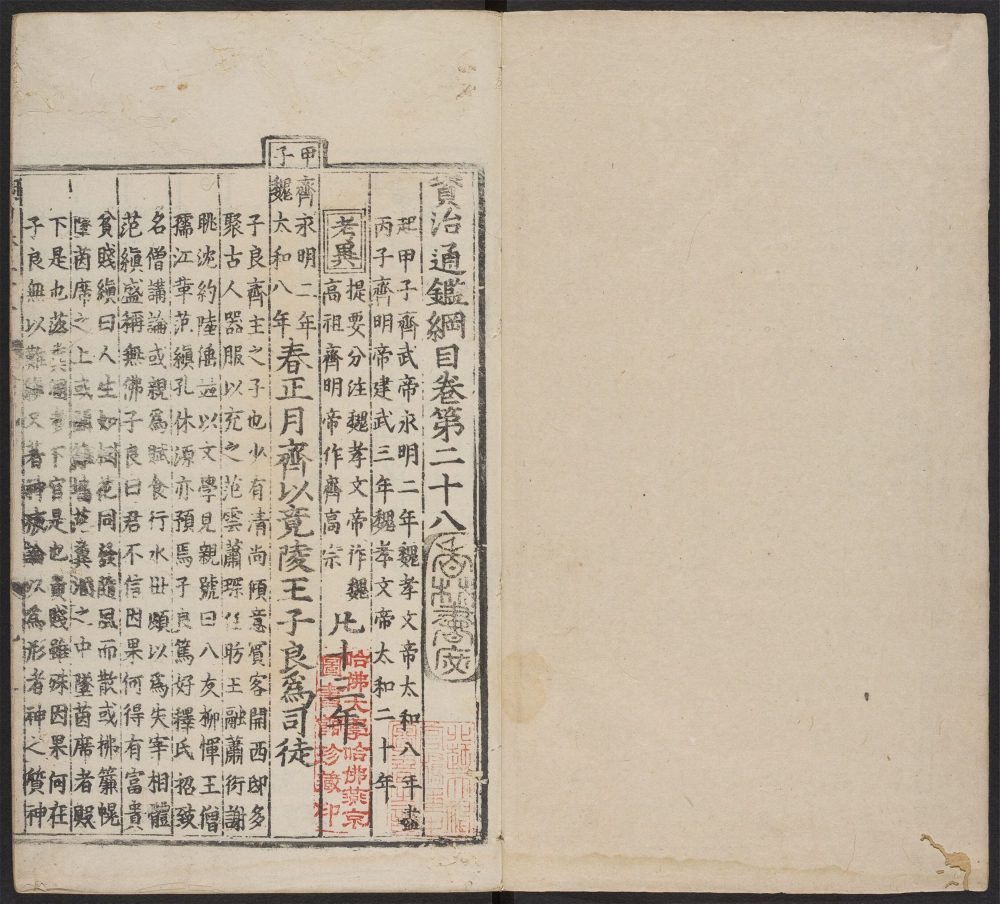 資治通鑑綱目卷第二十八
起甲子齊武帝永明二年魏孝文帝太和八年盡
丙子齊明帝建武三年魏孝文帝太和二十年
考異
提要分注魏孝文帝作魏
高祖齊明帝作齊高宗
凡十三年
甲子
齊永明二年
魏太和八年
春正月齊以竟陵王子良爲司徒
子良齊主之子也少有清尚傾意賓客開西邸多
聚古人器服以充之范雲蕭琛任昉王融蕭衍謝
朓沈約陸倕並以文學見親號曰八友柳惲王僧
孺江革范縝孔休源亦預焉子良篤好釋氏招致
名僧講論或親爲賦食行水世頗以爲失宰相體
范縝盛稱無佛子良曰君不信因果何得有富貴
貧賤縝曰人生如樹花同發隨風而散或拂簾幌
墜茵席之上或 之中墜茵席者殿
下是也落糞溷者下官是也貴賤雖殊因果何在
子良無以難縝又著神滅論以爲形者神之質神
哈佛大學哈佛燕京
圖書館珍藏印